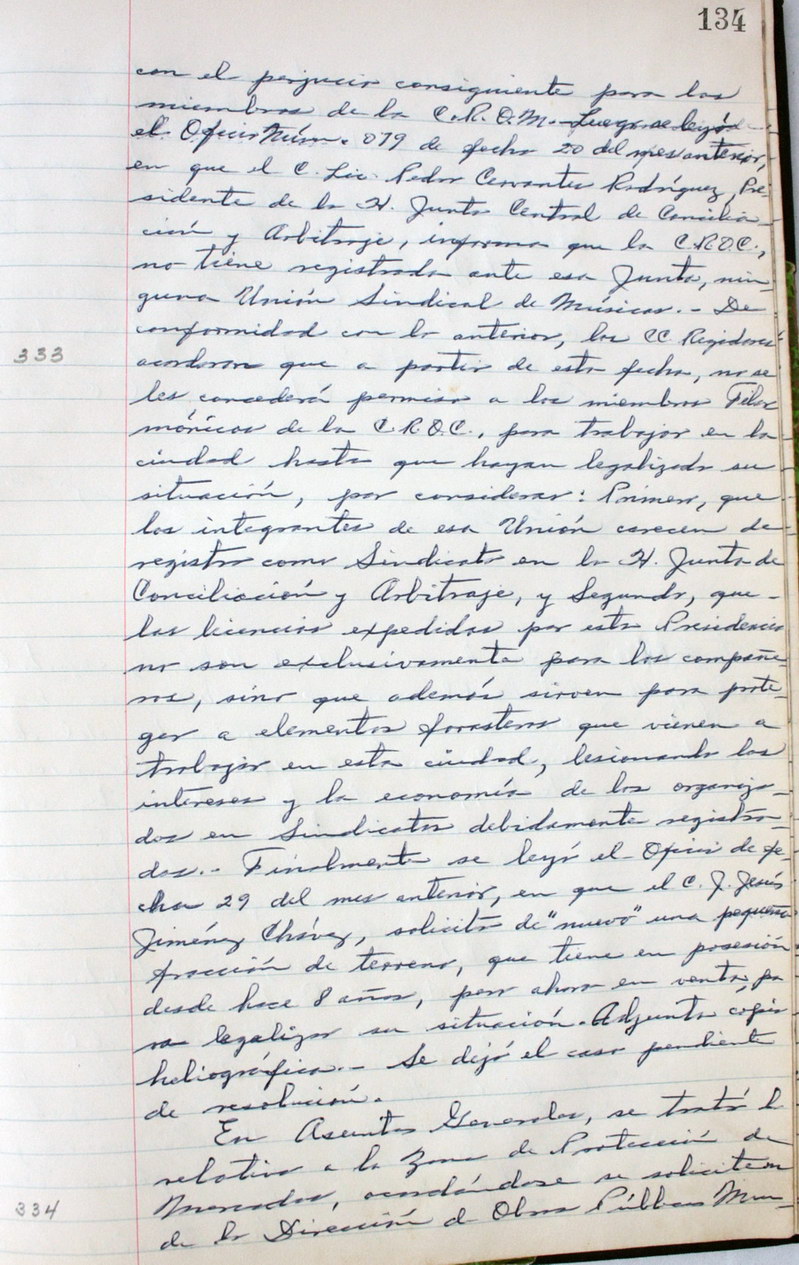 134
con el perjuicio consiguiente para los
miembros de la C.R.O.M.- Luego se leyó
el Oficio Núm. 079 de fecha 20 del mes anterior,
en que el C. Lic. Pedro Cervantes Rodríguez, Pre-
sidente de la H. Junta Central de Concilia-
ción y Arbitraje, informa que la C.R.O.C.,
no tiene registrada ante esa Junta, nin-
guna Unión Sindical de Músicos.- De
conformidad con lo anterior, los CC Regidores
333
acordaron que a partir de esta fecha, no se
les concederá permiso a los miembros Filar
mónicos de la C.R.O.C., para trabajar en la
ciudad hasta que hayan legalizado su
situación, por considerar: Primero, que
los integrantes de esa Unión carecen de
registro como Sindicato en la H. Junta de
Conciliación y Arbitraje, y Segundo, que-
las licencias expedidas por esta Presidencia
no son exclusivamente para los compañe
ros, sino que además sirven para prote-
ger a elementos forasteros que vienen a
trabajar en esta ciudad, lesionando los
intereses y la economía de los organiza-
dos en Sindicatos debidamente registra-
dos.- Finalmente se leyó el Oficio de fe-
cha 29 del mes anterior, en que el C. J. Jesús
Jiménez Chávez, solicita de "nuevo" una pequeña
fracción de terreno, que tiene en posesión
desde hace 8 años, pero ahora en venta, pa
ra legalizar su situación. Adjunta copia
heliográfica.- Se dejó el caso pendiente
de resolución.
En Asuntos Generales, se trató lo
relativo a la Zona de Protección de
Mercados, acordándose se solicite
334
de la Dirección de Obras Públicas Mun-